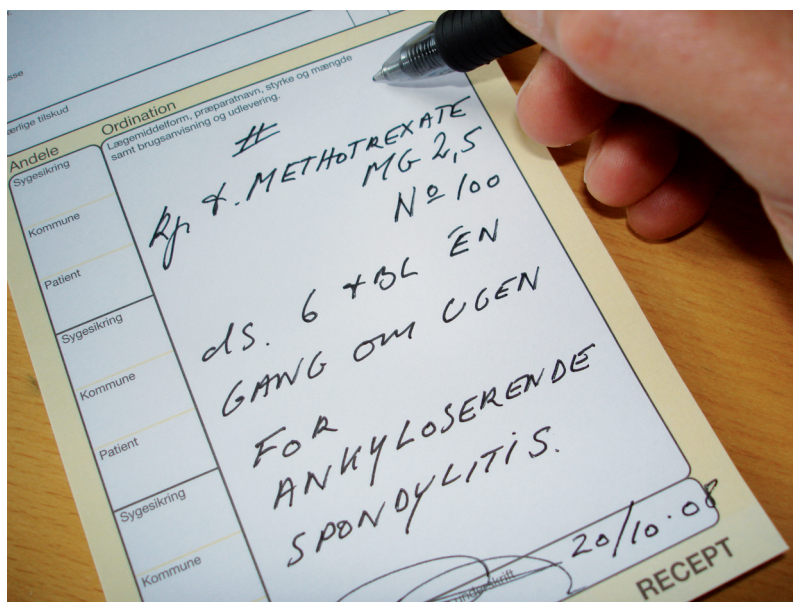 sse
ærlige tilskud
Andele
Ordination
Lægemiddelform, præparatnavn, styrke og mængde
samt brugsanvisning og udlevering.
Sygesikring
Kommune
Patient
Sygesikring
Kommune
Patient
Sygesikring
Kommune
#
Rp. t. METHOTREXATE
MG 2,5
Nº 100
dS. 6 TBL ÉN
GANG OM UGEN
FOR
ANKYLOSERENDE
SPONDYLITIS.
20/10-08
underskrift
RECEPT